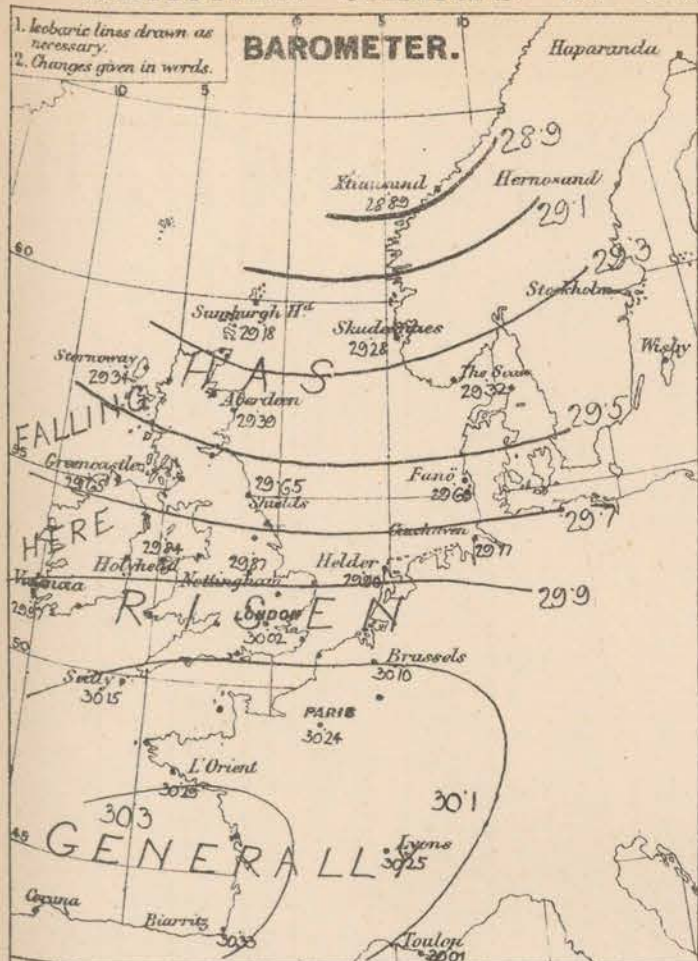 1. Isobaric lines drawn as
necessary.
2. Changes given in words.
BAROMETER.
Haparanda
10
5
5
10
28.9
Xtiansund
28.89
Hernosand
29.1
60
29.3
Stockholm
Sumburgh Hd
29.18
Skudesnaes
29.28
Wisby
Stornoway
29.34
HAS
The Scaw
29.32
Aberdeen
29.39
FALLING
29.5
55
Greencastle
29.65
Shields
Fanö
29.7
Cuxhaven
29.77
HERE
29.84
Holyhead
29.87
Nottingham
Helder
Valencia
29.9
RISEN
LONDON
30.02
50
Brussels
30.10
Scilly
30.15
PARIS
30.24
L'Orient
30.3
30.1
45
GENERALLY
Lyons
30.25
Coruna
Biarritz
30.33
Toulon